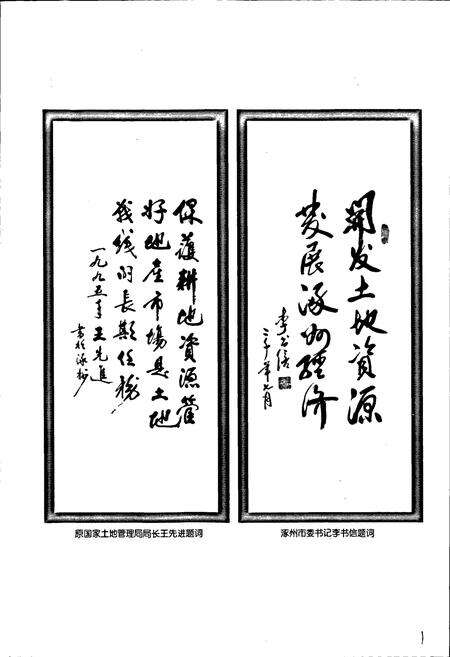 保護耕地資源管
好地產市場是土地
战线的長期任務
一九九五年王先進
書於涿州
原国家土地管理局局长王先进题词
開发土地資源
發展涿州經济
李书信
二千年七月
涿州市委书记李书信题词
1